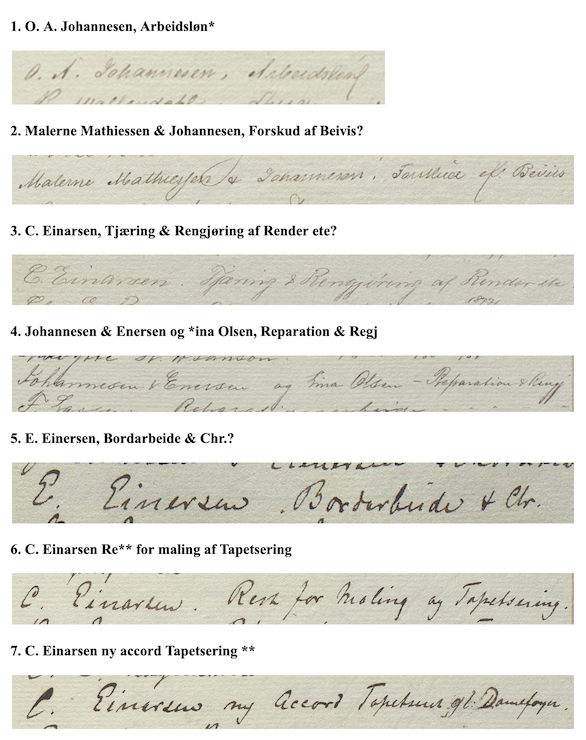 1. O. A. Johannesen, Arbeidsløn*
O. A. Johannesen, Arbeidsløn
2. Malerne Mathiessen & Johannesen, Forskud af Beivis?
Malerne Mathiessen & Johannesen,
3. C. Einarsen, Tjæring & Rengjøring af Render ete?
C. Einarsen. Tjæring & Rengjøring af Render etc
4. Johannesen & Enersen og *ina Olsen, Reparation & Regj
Johannesen & Enersen og Olsen - Reparation & Rengj
5. E. Einersen, Bordarbeide & Chr.?
E. Einersen, Bordarbeide & Chr.
6. C. Einarsen Re** for maling af Tapetsering
C. Einarsen. Rest for Maling og Tapetsering.
7. C. Einarsen ny accord Tapetsering **
C. Einersen ny Accord gl.